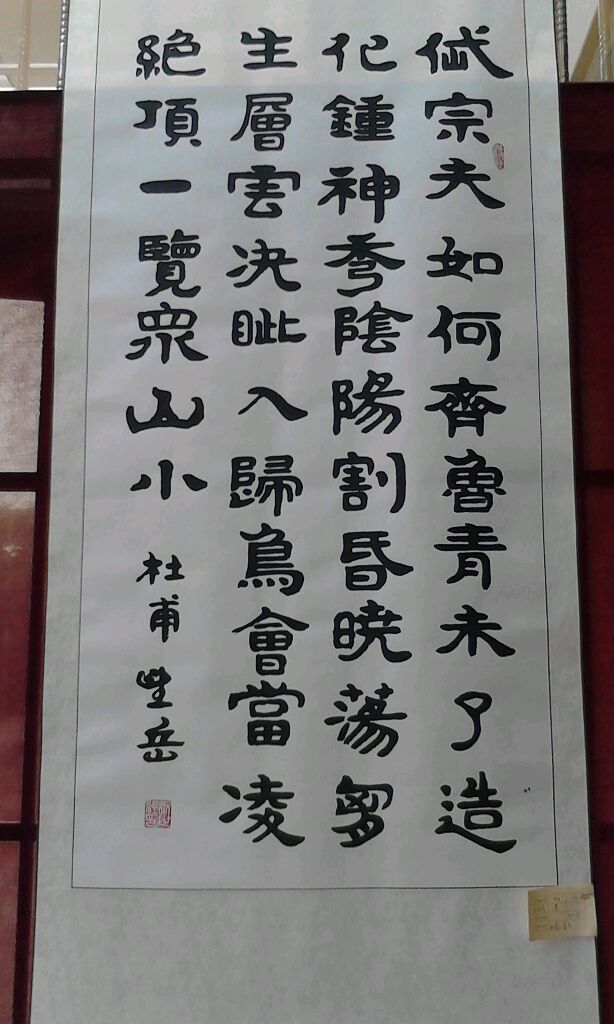 岱宗夫如何齊魯青未了造
化鍾神秀陰陽割昏曉蕩胷
生層雲决眦入歸鳥會當凌
絕頂一覽眾山小
杜甫望岳